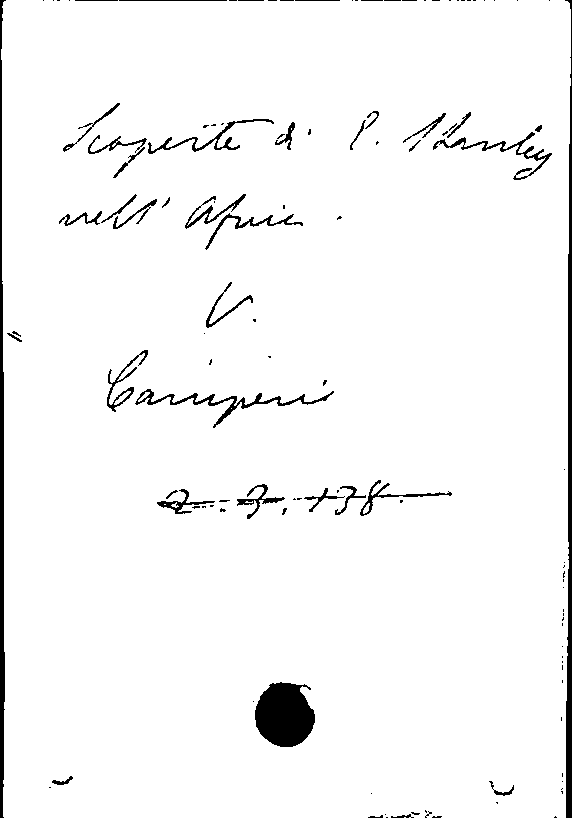 Scoperte di E. Stanley
nell' Africa.
V.
Camperio
2. 3. 138